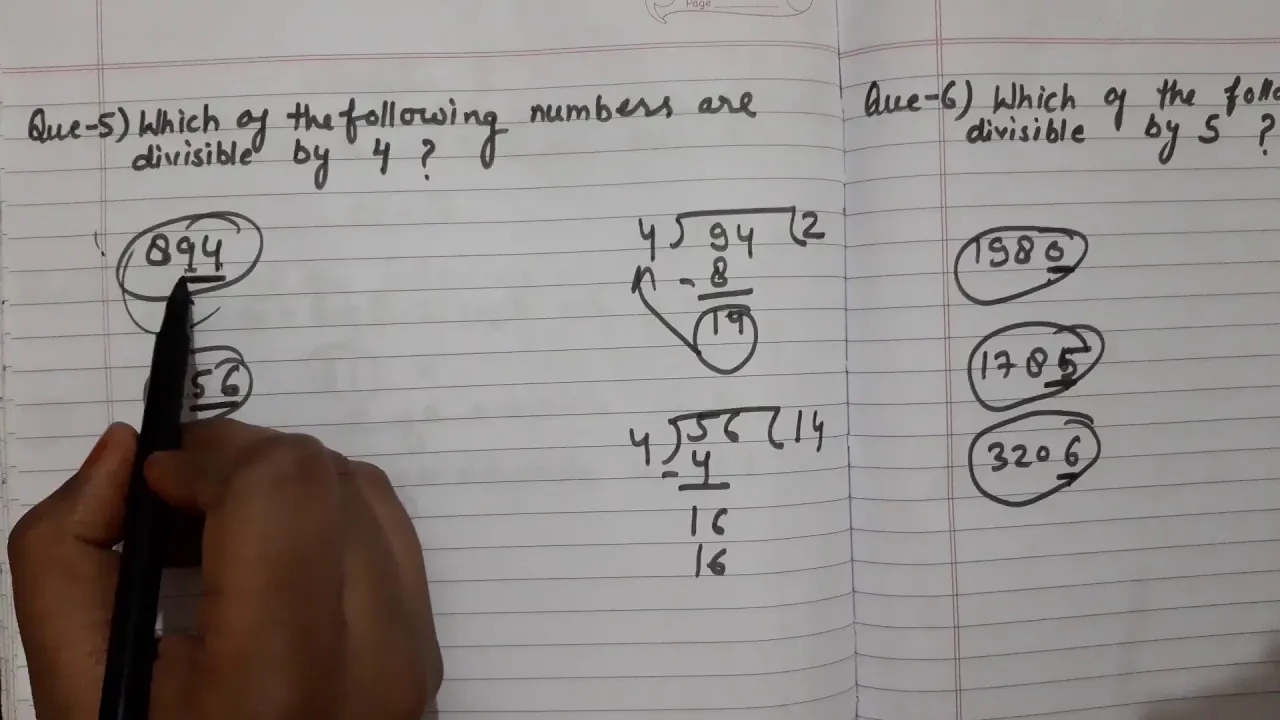 Page
Que-5) Which of the following numbers are
divisible by 4 ?
894
56
4 ) 94 ( 2
- 8
19
4 ) 56 ( 14
- 4
16
16
Que-6) Which of the follo
divisible by 5 ?
1980
1785
3206